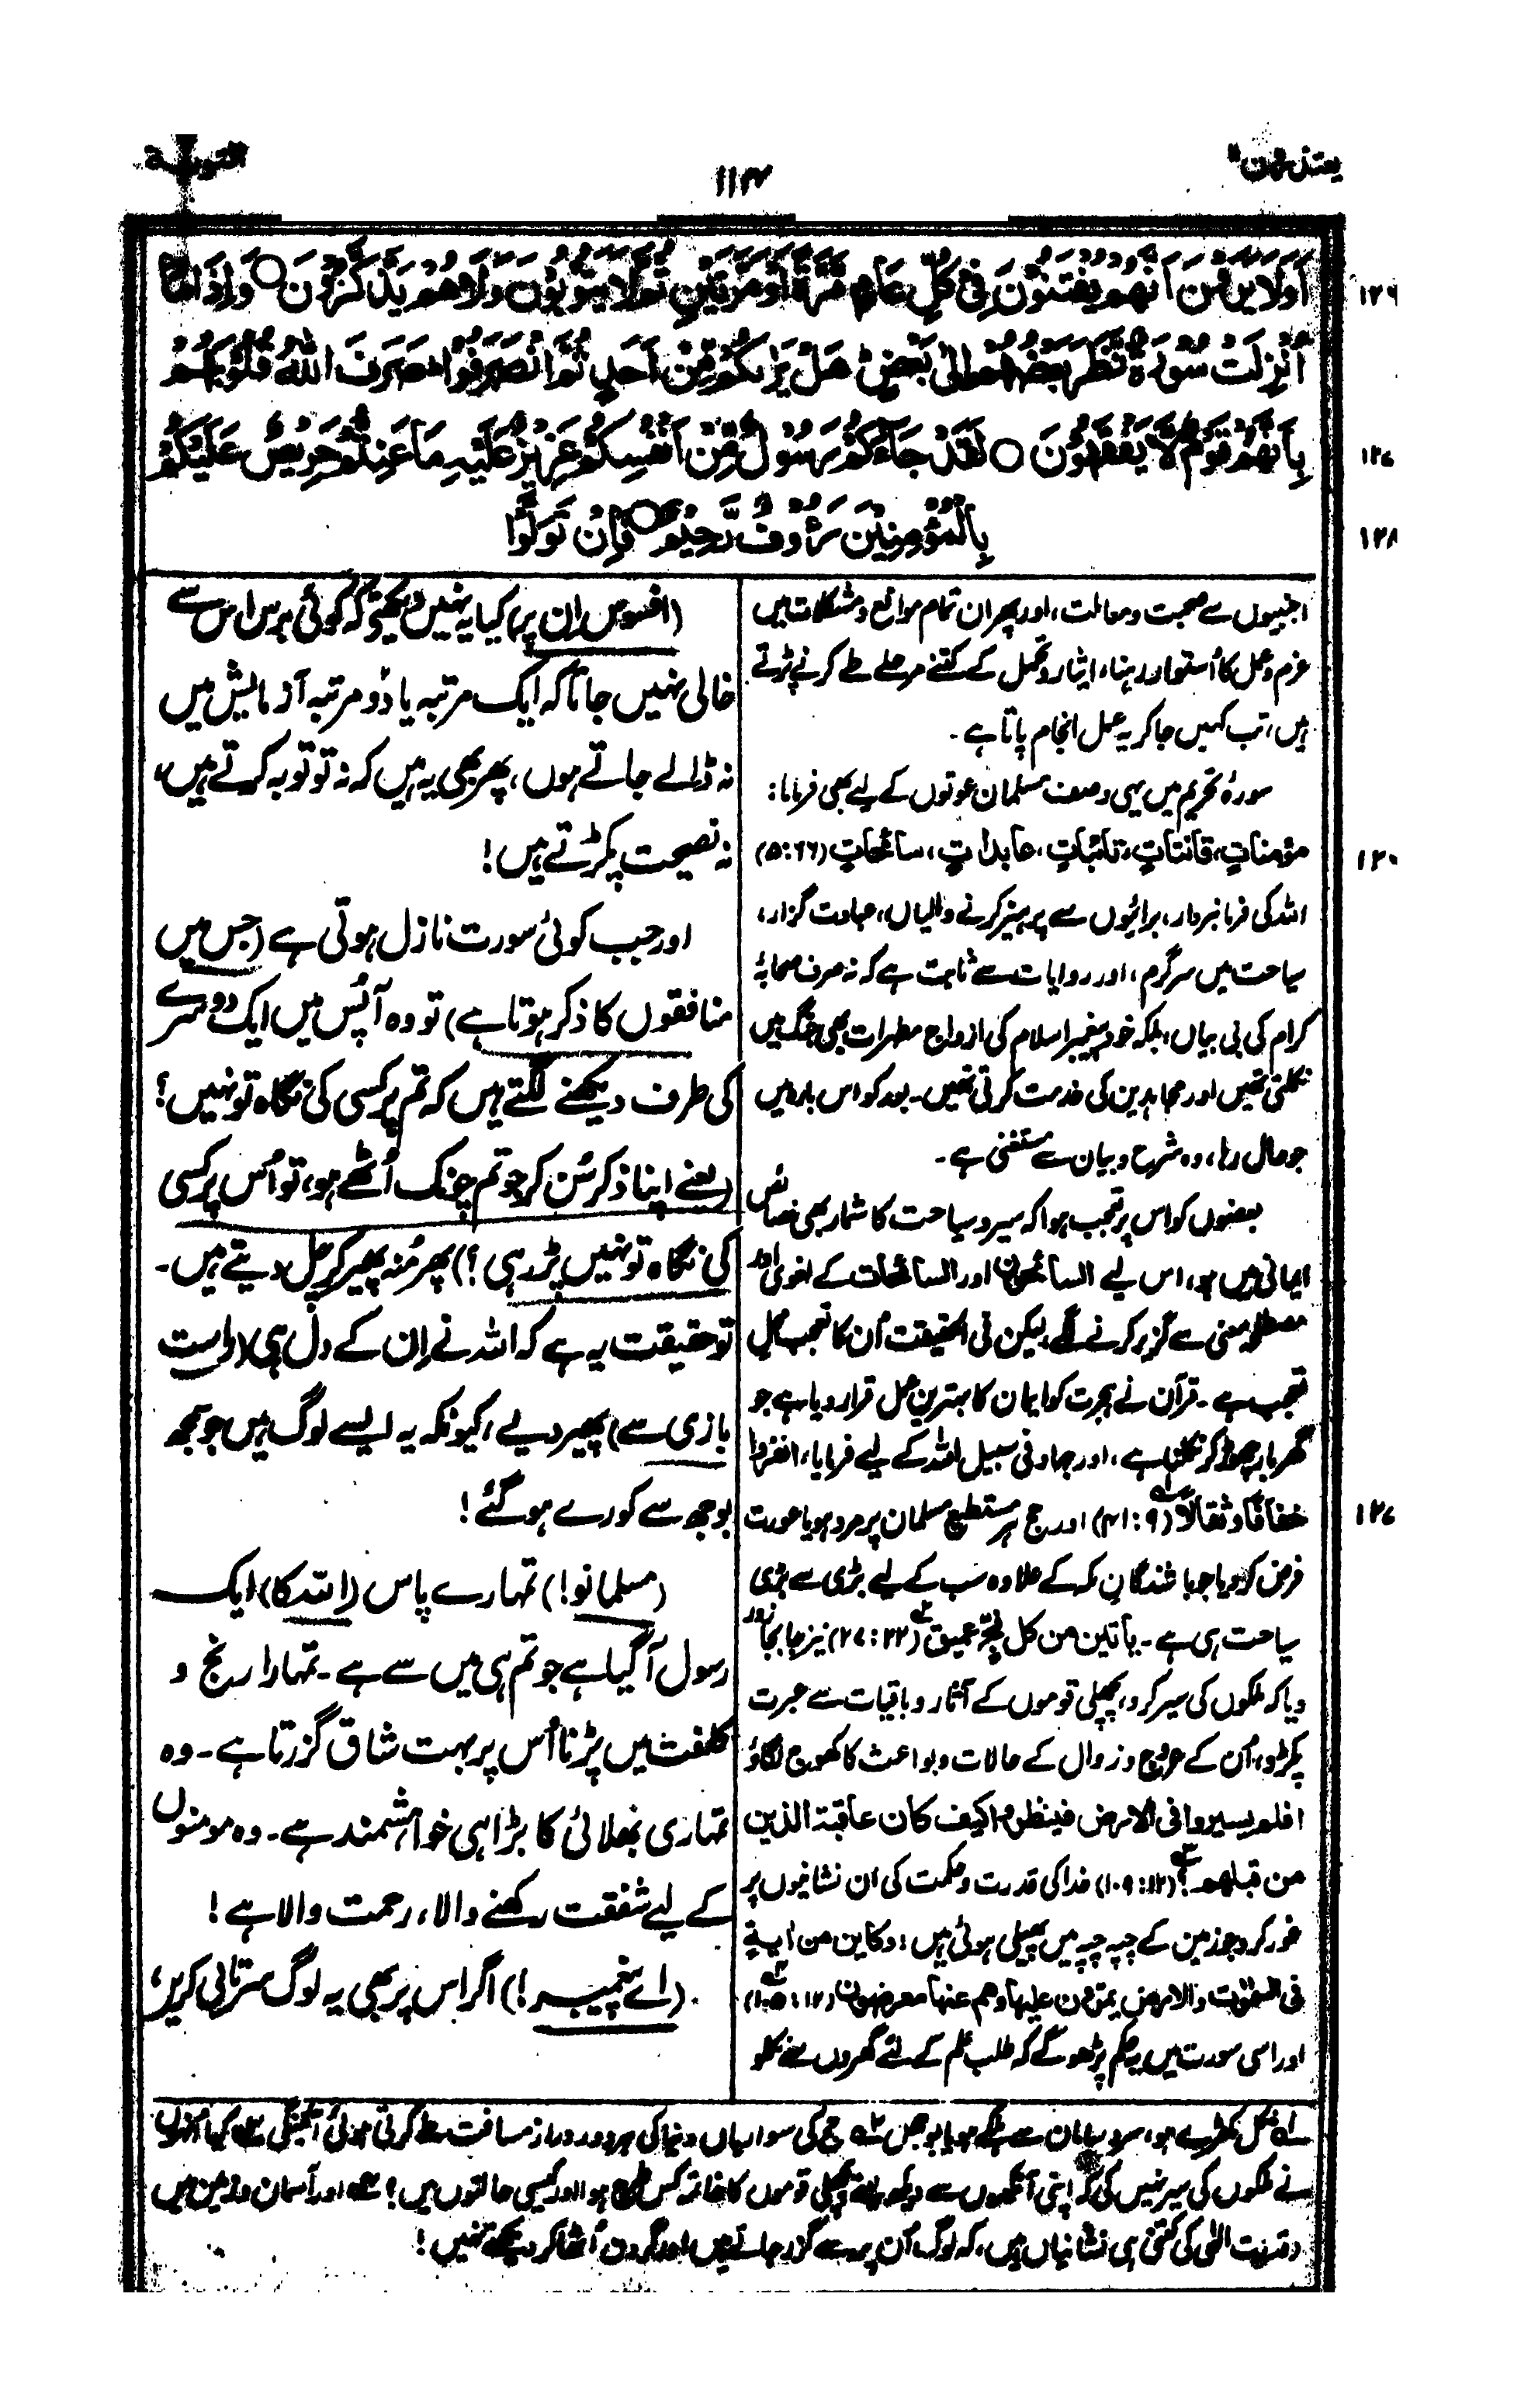 یعتذرون ۱۱
التوبۃ
اَوَلَا يَرَوْنَ اَنَّهُمْ يُفْتَنُوْنَ فِيْ كُلِّ عَامٍ مَّرَّةً اَوْ مَرَّتَيْنِ ثُمَّ لَا يَتُوْبُوْنَ وَلَا هُمْ يَذَّكَّرُوْنَ ○ وَاِذَا مَآ
۱۲۶
اُنْزِلَتْ سُوْرَةٌ نَّظَرَ بَعْضُهُمْ اِلٰى بَعْضٍ هَلْ يَرٰىكُمْ مِّنْ اَحَدٍ ثُمَّ انْصَرَفُوْا صَرَفَ اللّٰهُ قُلُوْبَهُمْ
بِاَنَّهُمْ قَوْمٌ لَّا يَفْقَهُوْنَ ○ لَقَدْ جَآءَكُمْ رَسُوْلٌ مِّنْ اَنْفُسِكُمْ عَزِيْزٌ عَلَيْهِ مَا عَنِتُّمْ حَرِيْصٌ عَلَيْكُمْ
۱۲۷
بِالْمُؤْمِنِيْنَ رَءُوْفٌ رَّحِيْمٌ ○ فَاِنْ تَوَلَّوْا
۱۲۸
اجنبیوں سے صحبت و معاملت، اور پھر ان تمام موانع و مشکلات میں
عزم و عمل کا اُستوار رہنا، ایثار و تحمل کے کتنے مرحلے طے کرنے پڑتے
ہیں، تب کہیں جا کر یہ عمل انجام پاتا ہے۔
سورۂ تحریم میں یہی وصف مسلمان عورتوں کے لیے بھی فرمایا:
مؤمناتٍ، قانتاتٍ، تائباتٍ، عابداتٍ، سائحاتٍ (۶۶:۵)
اللہ کی فرمانبردار، برائیوں سے پرہیز کرنے والیاں، عبادت گزار،
سیاحت میں سرگرم، اور روایات سے ثابت ہے کہ نہ صرف صحابۂ
کرام کی بی بیاں، بلکہ خود پیغمبر اسلام کی ازواج مطہرات بھی جنگ میں
نکلتی تھیں اور مجاہدین کی خدمت کرتی تھیں۔ بعد کو اس بارہ میں
جو حال رہا، وہ شرح و بیان سے مستغنی ہے۔
بعضوں کو اس پر تعجب ہوا کہ سیر و سیاحت کا شمار بھی خصائص
ایمانی میں ہو، اس لیے السائحون اور السائحات کے لغوی اور
مصطلحہ معنی سے گریز کرنے لگے، لیکن فی الحقیقت اُن کا تعجب محل
تعجب ہے۔ قرآن نے ہجرت کو ایمان کا بہترین عمل قرار دیا ہے جو
گھر بار چھوڑ کر نکلنا ہے، اور جہاد فی سبیل اللہ کے لیے فرمایا، انفروا
خفافًا و ثقالًا (۹:۴۱) اور حج ہر مستطیع مسلمان پر مرد ہو یا عورت
فرض کر دیا جو باشندگانِ مکہ کے علاوہ سب کے لیے بڑی سے بڑی
سیاحت ہی ہے۔ یاتین من کل فجٍّ عمیق (۲۲:۲۷) نیز جا بجا زور
دیا کہ ملکوں کی سیر کرو، پچھلی قوموں کے آثار و باقیات سے عبرت
پکڑو، اُن کے عروج و زوال کے حالات و بواعث کا کھوج لگاؤ
افلم یسیروا فی الارض فینظروا کیف کان عاقبة الذین
من قبلهم؟ (۱۲:۱۰۹) خدا کی قدرت و حکمت کی ان نشانیوں پر
غور کرو جو زمین کے چپہ چپہ میں پھیلی ہوئی ہیں: وکاین من اٰیة
فی السمٰوٰت والارض یمرون علیها وهم عنها معرضون (۱۲:۱۰۵)
اور اسی سورت میں یہ حکم پڑھو گے کہ طلب علم کے لئے گھروں سے نکلو
(افسوس اِن پر!) کیا یہ نہیں دیکھتے کہ کوئی برس اس سے
خالی نہیں جاتا کہ ایک مرتبہ یا دو مرتبہ آزمایش میں
نہ ڈالے جاتے ہوں، پھر بھی یہ ہیں کہ نہ تو توبہ کرتے ہیں،
نہ نصیحت پکڑتے ہیں!
اور جب کوئی سورت نازل ہوتی ہے (جس میں
منافقوں کا ذکر ہوتا ہے) تو وہ آپس میں ایک دوسرے
کی طرف دیکھنے لگتے ہیں کہ تم پر کسی کی نگاہ تو نہیں؟
(یعنے اپنا ذکر سُن کر جو تم چونک اُٹھے ہو، تو اُس پر کسی
کی نگاہ تو نہیں پڑ رہی؟) پھر مُنہ پھیر کر چل دیتے ہیں۔
تو حقیقت یہ ہے کہ اللہ نے اِن کے دل ہی (راست
بازی سے) پھیر دیے، کیونکہ یہ ایسے لوگ ہیں جو سمجھ
بوجھ سے کورے ہو گئے!
۱۲۷
(مسلمانو!) تمہارے پاس (اللہ کا) ایک
رسول آ گیا ہے جو تم ہی میں سے ہے۔ تمہارا رنج و
کلفت میں پڑنا اُس پر بہت شاق گزرتا ہے۔ وہ
تمہاری بھلائی کا بڑا ہی خواہشمند ہے۔ وہ مومنوں
کے لیے شفقت رکھنے والا، رحمت والا ہے!
(اے پیغمبر!) اگر اس پر بھی یہ لوگ سرتابی کریں،
نکل کھڑے ہو، سروسامان سے ہلکے ہو یا بوجھل حج کی سواریاں دنیا کی ہر دور دراز مسافت طے کرتی ہوئی کیا انہوں
نے ملکوں کی سیر نہیں کی کہ اپنی آنکھوں سے دیکھ لیتے پچھلی قوموں کا خاتمہ کس طرح ہوا اور کیسی حالتوں میں؟ اور آسمان و زمین میں
قدرت الٰہی کی کتنی ہی نشانیاں ہیں، کہ لوگ اُن پر سے گزر جاتے ہیں اور گردن اُٹھا کر دیکھتے نہیں!